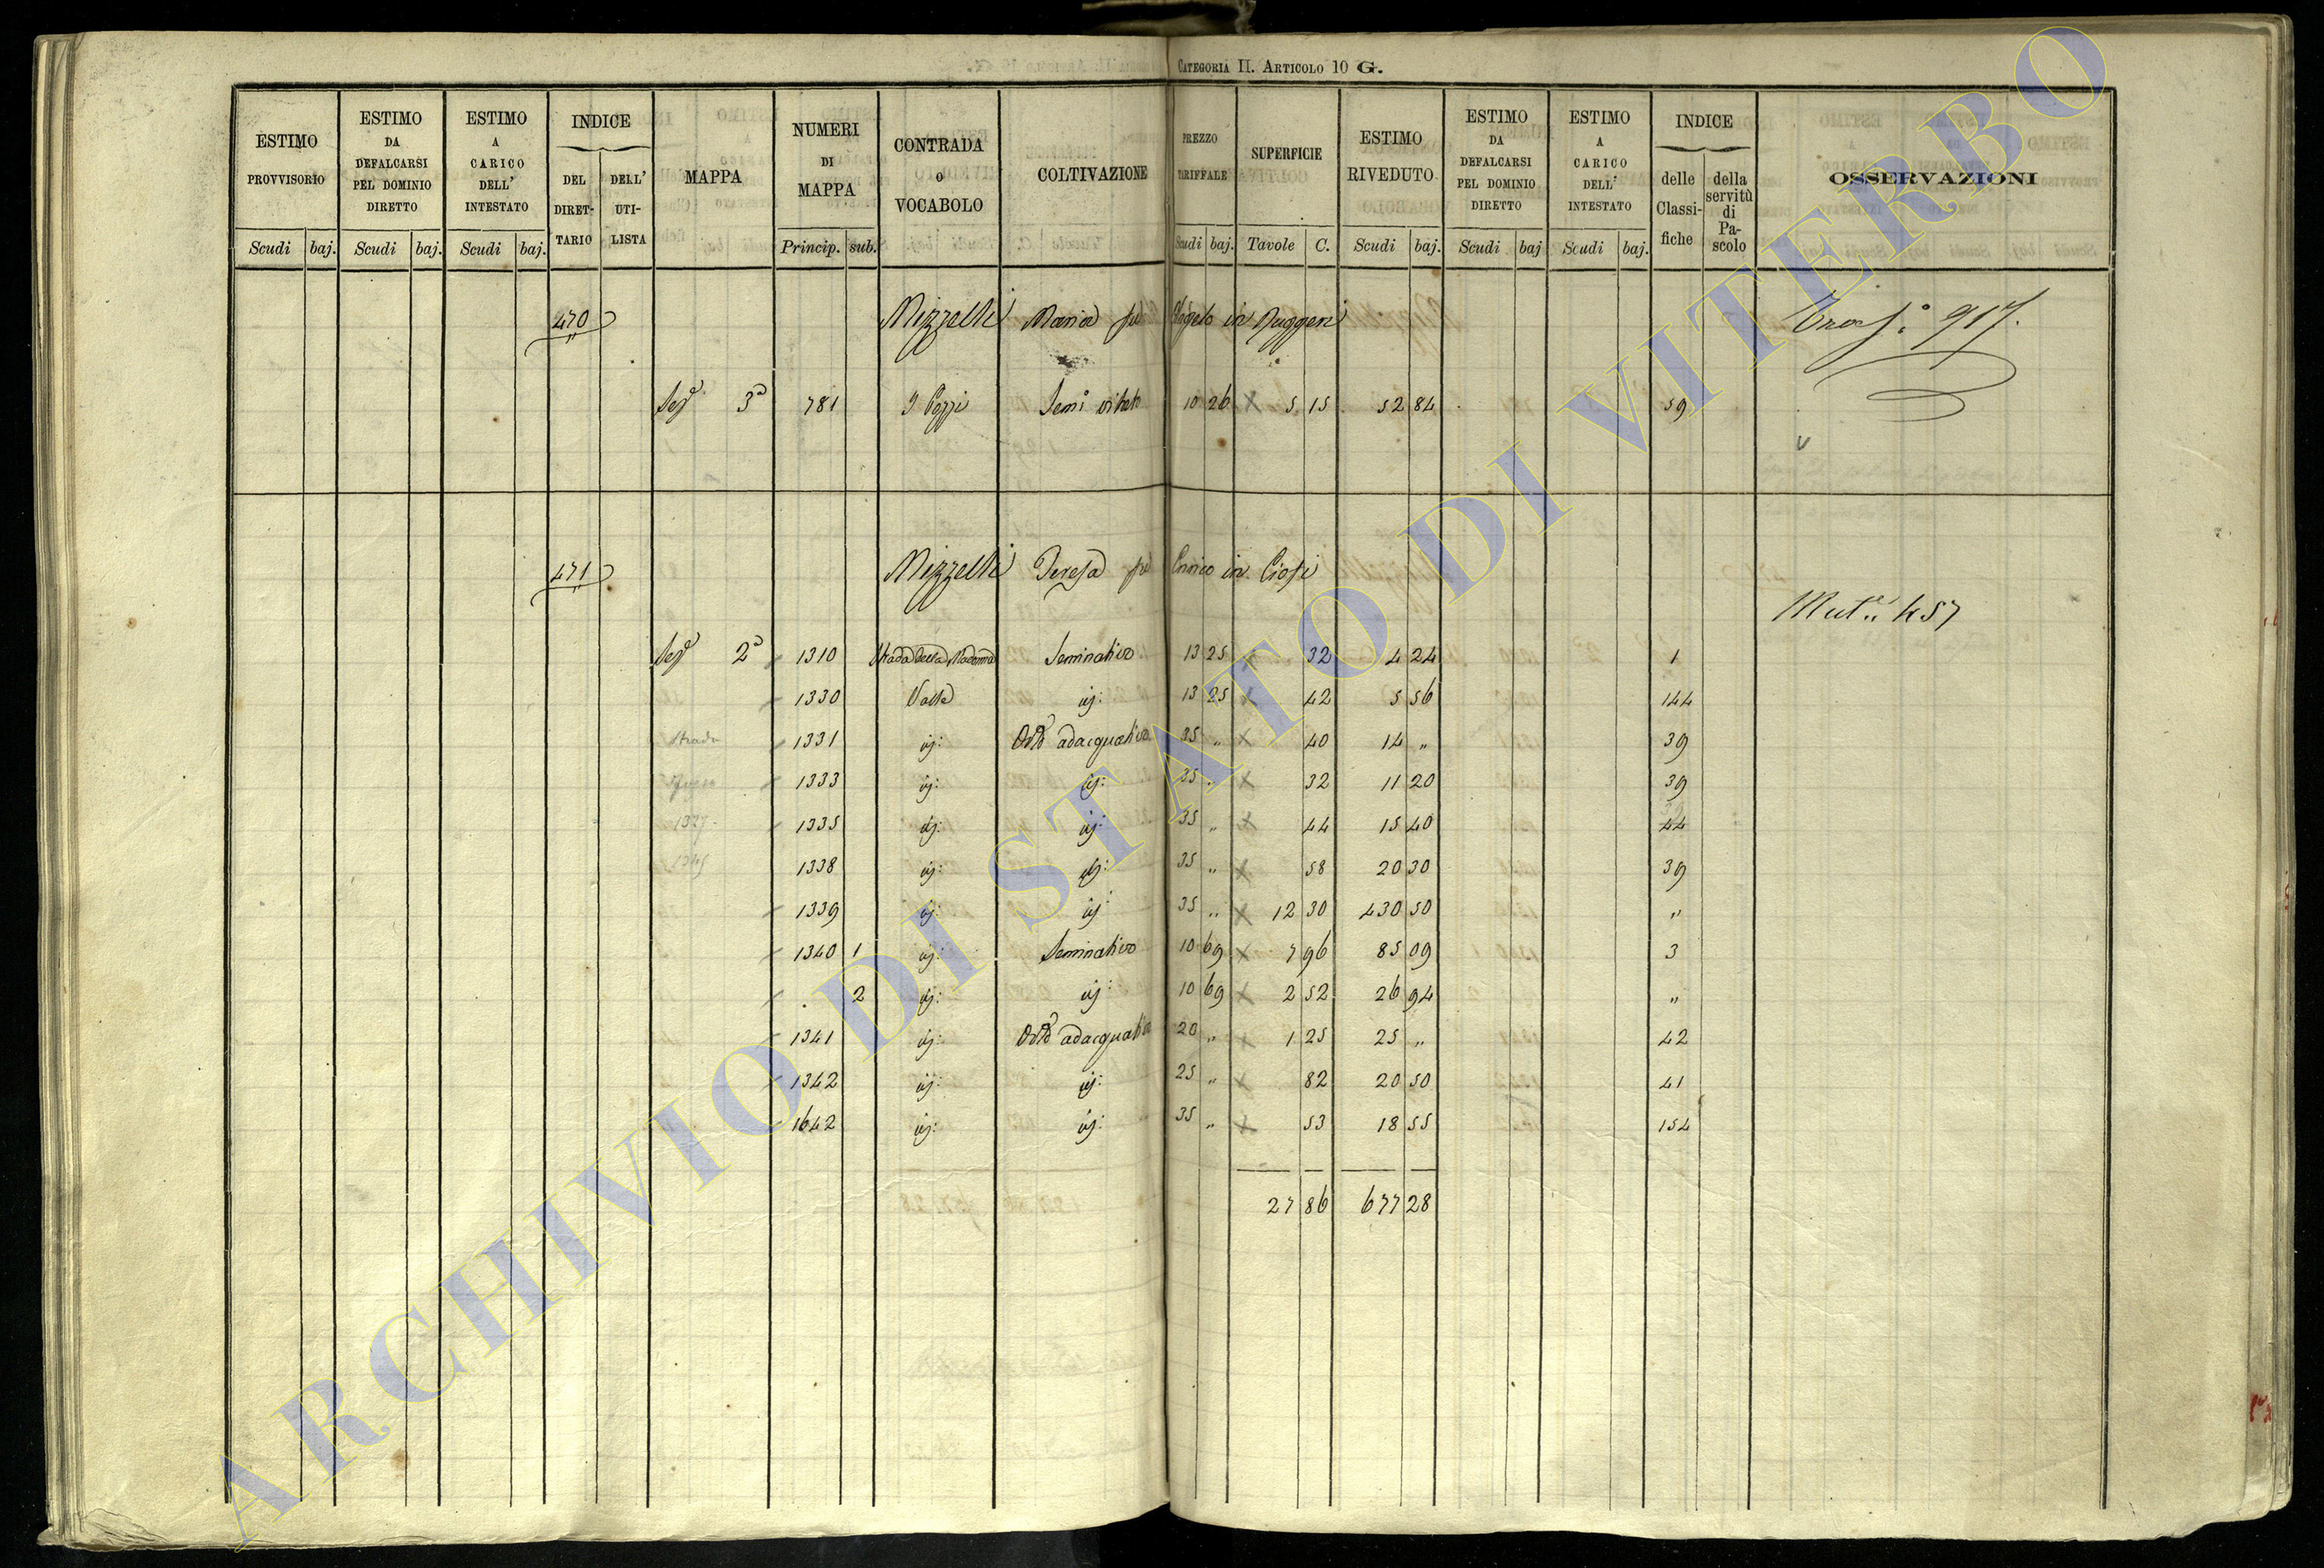 Categoria II. Articolo 10 G.
ESTIMO PROVVISORIO | ESTIMO DA DEFALCARSI PEL DOMINIO DIRETTO | ESTIMO A CARICO DELL' INTESTATO | INDICE | MAPPA | NUMERI DI MAPPA | CONTRADA O VOCABOLO | COLTIVAZIONE | PREZZO TARIFFALE | SUPERFICIE | ESTIMO RIVEDUTO | ESTIMO DA DEFALCARSI PEL DOMINIO DIRETTO | ESTIMO A CARICO DELL' INTESTATO | INDICE | OSSERVAZIONI
DEL DIRETTARIO | DELL' UTILISTA | delle Classifiche | della servitù di Pascolo
Scudi | baj. | Scudi | baj. | Scudi | baj. | Princip. | sub. | Scudi | baj. | Tavole | C. | Scudi | baj. | Scudi | baj | Scudi | baj.
470 Mizzelli Maria fu Angelo in Ruggeri 917.
Sez 3a 781 I Pozzi Semi vitato 10 26 5 15 52 84 59
471 Mizzelli Teresa fu Enrico in Ciofi
Mut. 457
Sez 2a 1310 Strada della Madonna Seminativo 13 25 32 4 24 1
1330 Valle ij: 13 25 42 5 56 144
strada 1331 ij: Orto adacquativo 35 " 40 14 " 39
1333 ij: ij: 35 " 32 11 20 39
1335 ij: ij: 35 " 44 15 40 44
1338 ij: ij: 35 " 58 20 30 39
1339 ij: ij 35 " 12 30 430 50 "
1340 1 ij: Seminativo 10 69 7 96 85 09 3
2 ij: ij: 10 69 2 52 26 94 "
1341 ij: Orto adacquativo 20 " 1 25 25 " 42
1342 ij: ij: 25 " 82 20 50 41
1642 ij: ij: 35 " 53 18 55 154
27 86 677 28
ARCHIVIO DI STATO DI VITERBO